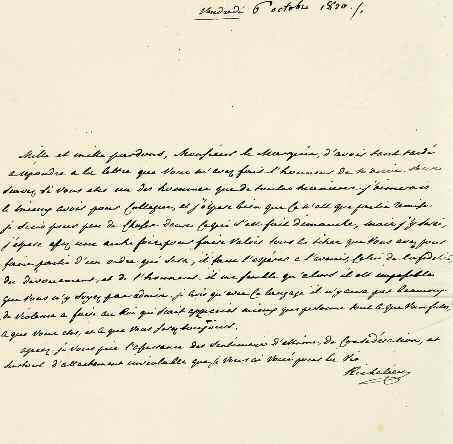 Vendredi 6 octobre 1820 /.
Mille et mille pardons, Monsieur le Marquis, d'avois tant tardé
a répondre a la lettre que vous m'avez fait l'honneur de
Savez, Si vous etes un des hommes que de toutes manieres j'aimerais
le mieux avoir pour Collegue, et j'espere bien que Ce n'est que partie remise
je Suis pour peu de Chose dans Ce qui S'est fait dimanche, mais j'y
j'espere une autre fois pour faire Valoir tous les titres que Vous avez pour
faire partie d'un ordre qui Sera, il faut l'espérer a l'avenir, Celui de la fidélité
du devouement, et de l'honneur. il me Semble qu'alors il est impossible
que Vous n'y Soyez pas admis. je Crois qu'avec Ce langage il n'y aura pas beaucoup
de Violence a faire au Roi qui Sait apprecier mieux que personne tout Ce que Vous faites
a que Vous etes, et a que Vous Serez toujours.
agréez je Vous prie l'assurance des Sentimens d'estime, de Consideration, et
Surtout d'attachement inviolable que je Vous ai Voué pour la Vie
Richelieu